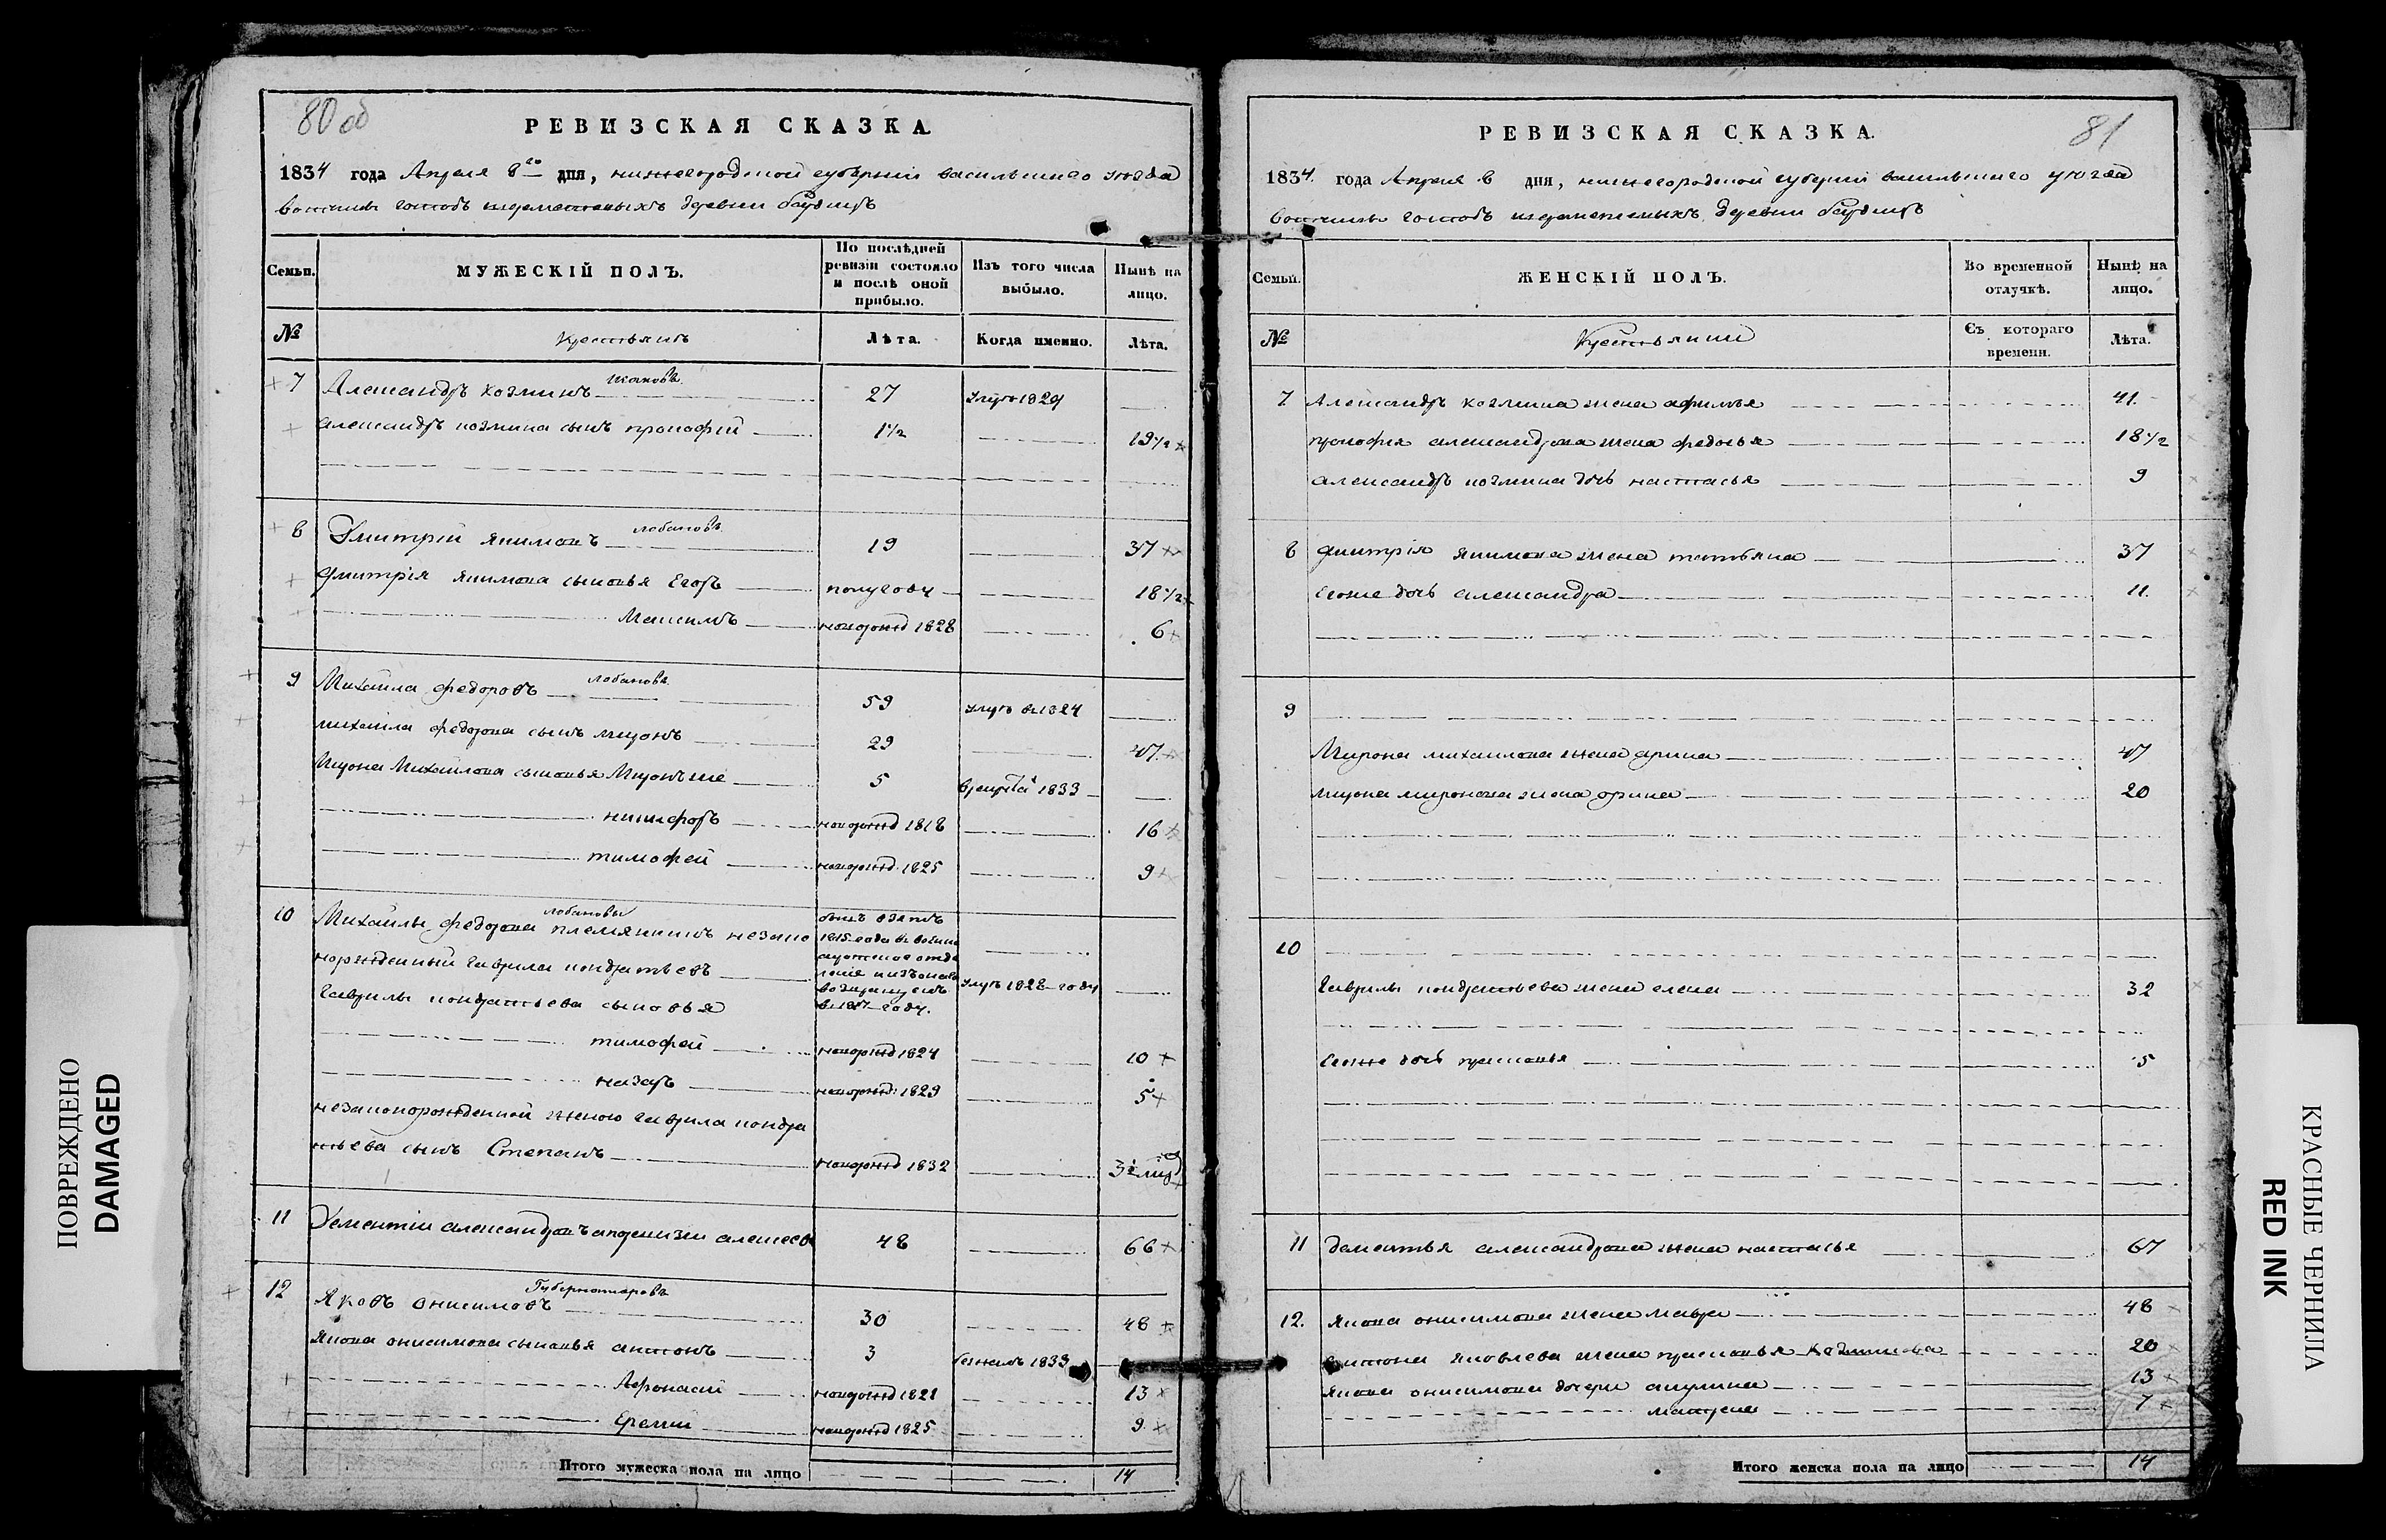 80 об
РЕВИЗСКАЯ СКАЗКА.
1834 года Апреля 8го дня, нижегородской губернии васильского уезда
вотчины деревни
Семьи.
МУЖЕСКІЙ ПОЛЪ.
По послѣдней ревизіи состояло и послѣ оной прибыло.
Изъ того числа выбыло.
Нынѣ на лицо.
№
Крестьянъ
Лѣта.
Когда именно.
Лѣта.
7 Александръ козминъ 27 умре 1829
александръ козмина сынъ прокофій 1 1/2 19 1/2
лобановъ
8 Дмитрій якимовъ 19 37
Дмитрія якимова сыновья Егоръ полугоду 18 1/2
Максимъ новорожд 1828 6
лобановъ
9 Михаила федоровъ 59 умре в 1824
михаила федорова сынъ миронъ 29 47
Мирона Михайлова сыновья Миронъ же 5 в рекруты 1833
никифоръ новорожд 1818 16
тимофей новорожд 1825 9
лобановы
10 Михаилы федорова племянникъ незако
норожденный гаврила кондратьевъ умре 1828 году
Гаврилы кондратьева сыновья
тимофей новорожд 1824 10
назаръ новорожд 1829 5
незаконорожденной женою гаврила кондра
тьева сынъ Степанъ новорожд 1832
11 Дементій александровъ 48 66
Губернаторовъ
12 Яковъ Онисимовъ 30 48
Якова онисимова сыновья антонъ 3 1833
Афонасій новорожд 1821 13
Еремій новорожд 1825 9
Итого мужеска пола на лицо 14
81
РЕВИЗСКАЯ СКАЗКА.
1834. года Апреля 8 дня, нижегородской губерній васильского уезда
вотчины деревни
Семьи.
ЖЕНСКІЙ ПОЛЪ.
Во временной отлучкѣ.
Нынѣ на лицо.
№
Крестьянки
Съ котораго времени.
Лѣта.
7 Александръ козмина жена афимья 41.
прокофія александрова жена федосья 18 1/2
александръ козмина дочь настасья 9
8 дмитрія якимова жена татьяна 37
Егоже дочь александра 11.
9
Мирона михаилова жена арина 47
мирона миронова жена орина 20
10
гаврилы кондратьева жена елена 32
Егоже дочь прасковья 5
11 дементья александрова жена настасья 67
12. якова онисимова жена мавра 48
антона яковлева жена прасковья козминова 20
якова онисимова дочери акулина 13
матрена 7
Итого женска пола на лицо 14
ПОВРЕЖДЕНО
DAMAGED
КРАСНЫЕ ЧЕРНИЛА
RED INK